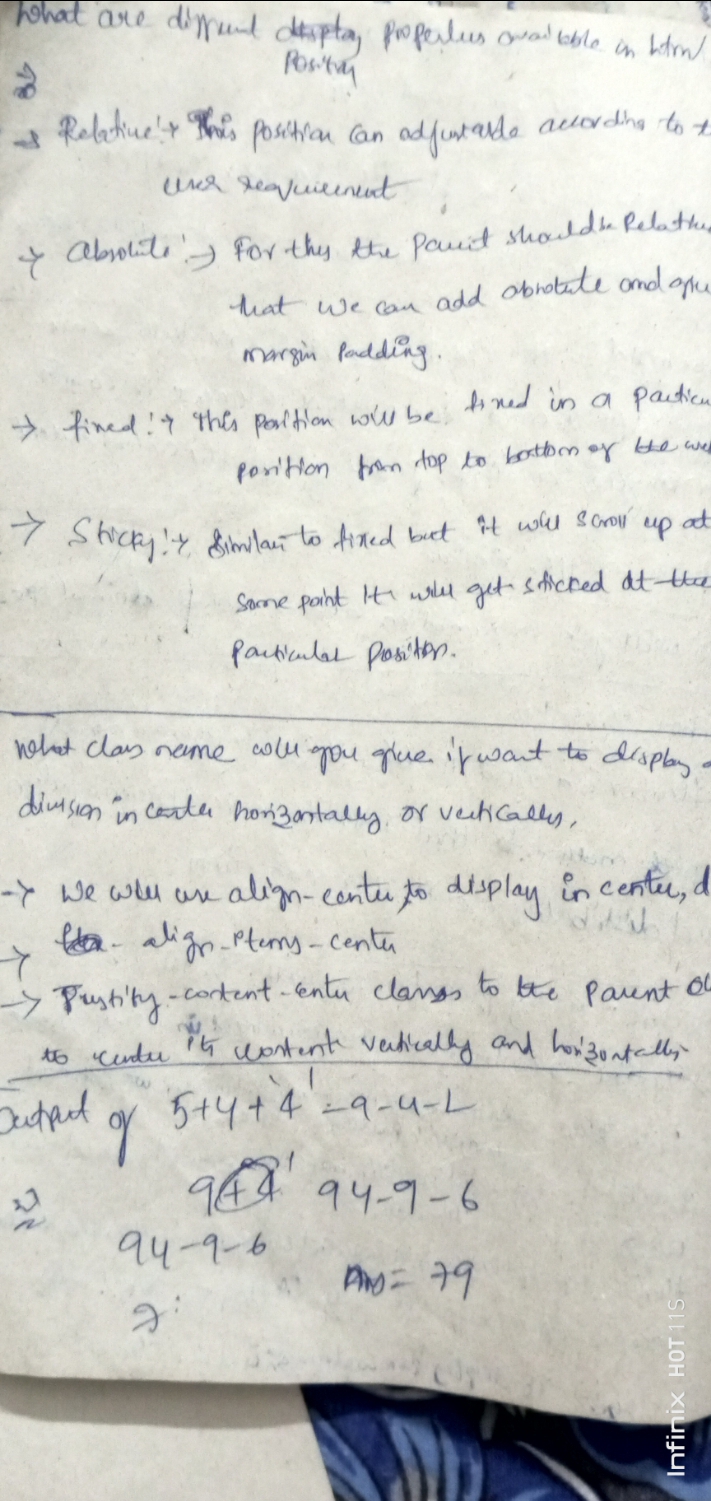 What are diffrent properties available in html
Position
→ Relative:→ This position can adjustable according to t
user requirement
→ absolute:→ For this the parent should be Relative
that we can add absolute and
margin padding.
→ fixed:→ this position will be fixed in a particu
position from top to bottom of the we
→ Sticky:→ Similar to fixed but it will scroll up at
some point it will get sticked at the
particular position.
What class name will you give if want to display a
division in center horizontally or vertically,
→ We will use align-center, to display in center, d
→ align-items-center
→ Justify-content-center classes to the parent
to center its content vertically and horizontally
Output of 5+4+'4'-9-4-2
9+4' 94-9-6
94-9-6
Ans = 79
Infinix HOT 11S